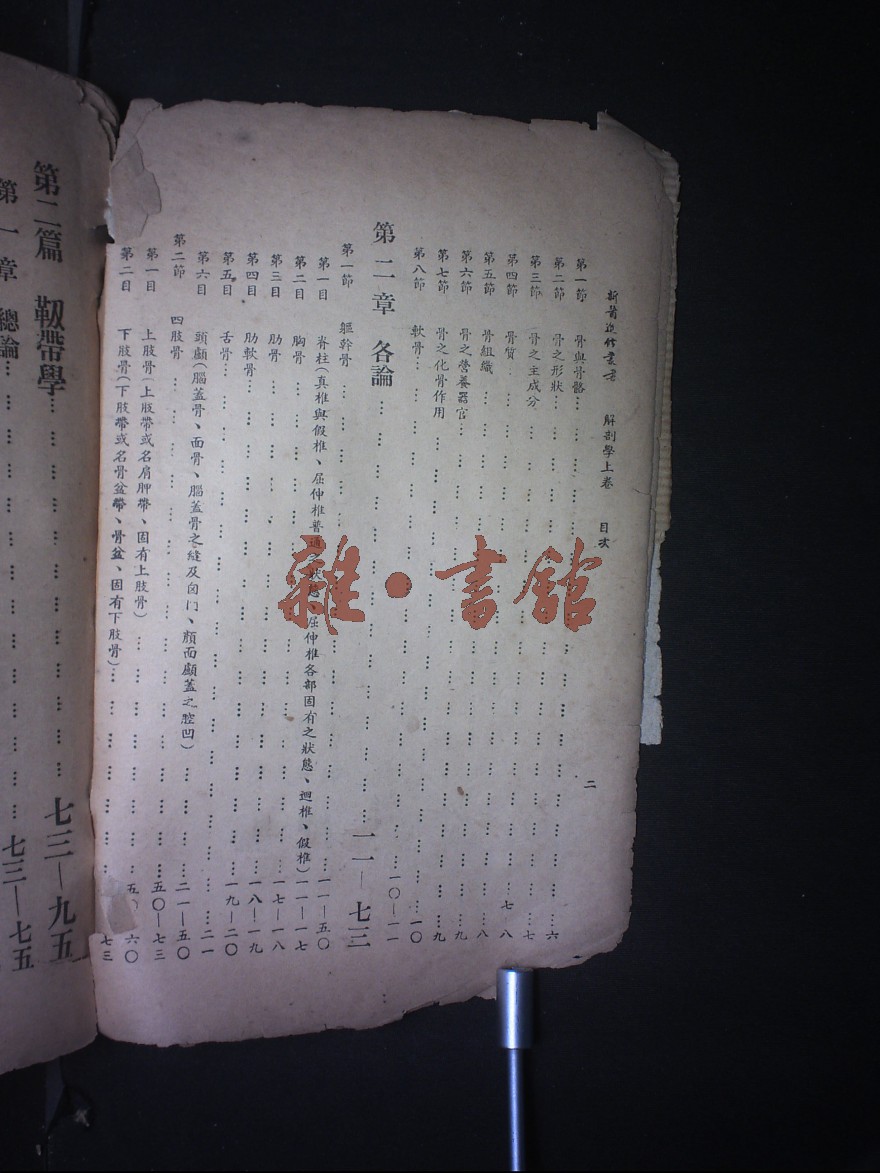 解剖學上卷 目次 二
第一節 骨與骨骼 六
第二節 骨之形狀 七
第三節 骨之主成分 七
第四節 骨質 七—八
第五節 骨組織 八
第六節 骨之營養器官 九
第七節 骨之化骨作用 九
第八節 軟骨 一〇
一〇—一一
第二章 各論 一一—七三
第一節 軀幹骨 一一—五〇
第一目 脊柱(真椎與假椎、屈伸椎普通之狀態、屈伸椎各部固有之狀態、迴椎、假椎) 一一—一七
第二目 胸骨 一七—一八
第三目 肋骨 一八—一九
第四目 肋軟骨 一九—二〇
第五目 舌骨 二一
第六目 頭顱(腦蓋骨、面骨、腦蓋骨之縫及囟門、顏面顱蓋之腔凹) 二一—五〇
第二節 四肢骨 五〇—七三
第一目 上肢骨(上肢帶或名肩胛帶、固有上肢骨) 五 六〇
第二目 下肢骨(下肢帶或名骨盆帶、骨盆、固有下肢骨) 七三
第二篇 靱帶學 七三—九五
第一章 總論 七三—七五
雜·書館